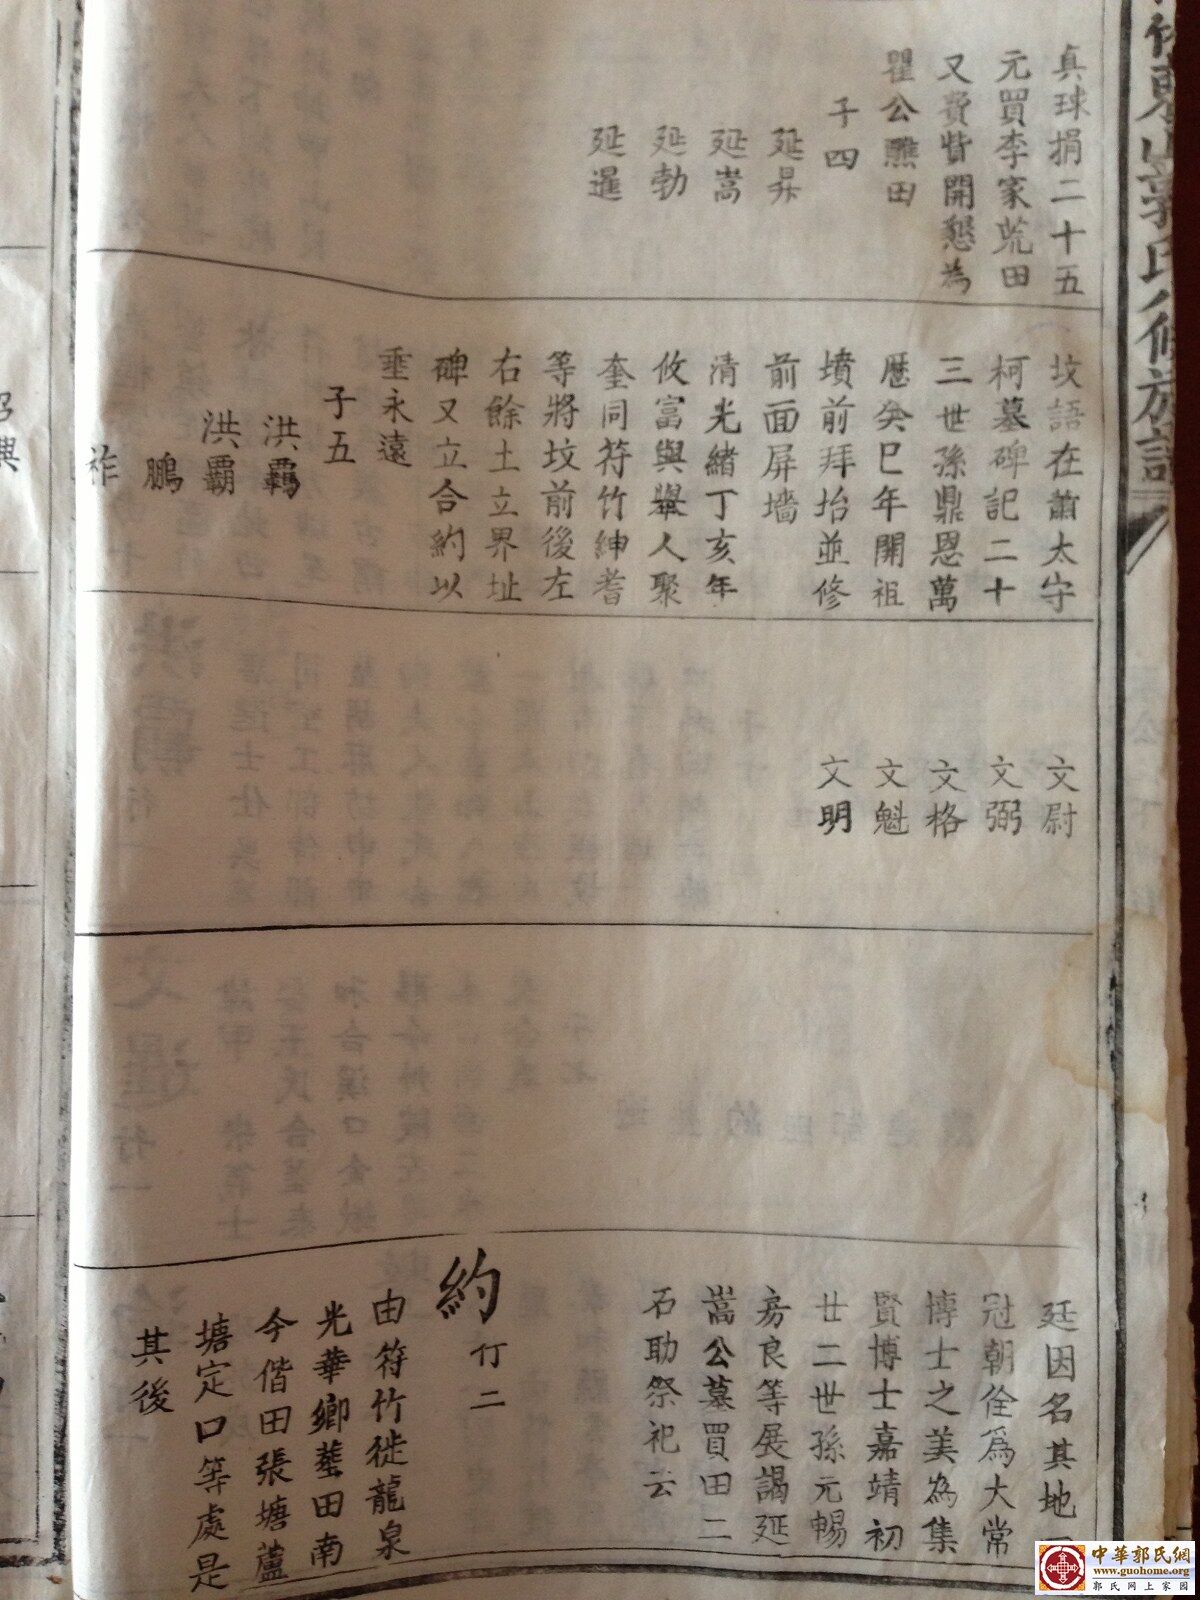 真珠捐二十五
元買李家荒田
又費貲開懇為
瞿公醮田
子四
延昇
延嵩
延勃
延暹
坟語在蕭太守
柯墓碑記二十
三世孫鼎恩萬
歷癸巳年開祖
墳前拜抬並修
前面屏墻
清光緒丁亥年
攸富與舉人聚
奎同符竹紳耆
等將坟前後左
右餘土立界址
碑又立合約以
垂永遠
子五
洪
洪霸
鵬
祚
文尉
文弼
文格
文魁
文明
廷因名其地
冠朝佺為大常
博士之美為集
賢博士嘉靖初
廿二世孫元暢
房良等展謁延
嵩公墓買田二
石助祭祀云
約行二
由符竹徙龍泉
光華鄉塟田南
今偕田張塘蘆
塘定口等處是
其後
氏八修族譜
紹興
中華郭氏網
www.guohome.org
郭氏网上家园